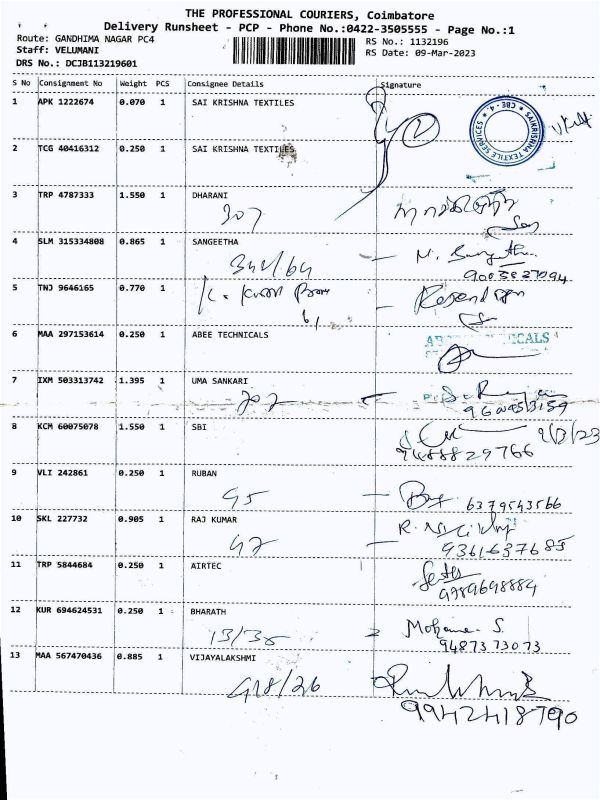 THE PROFESSIONAL COURIERS, Coimbatore
Delivery Runsheet - PCP - Phone No.:0422-3505555 - Page No.:1
Route: GANDHIMA NAGAR PC4
RS No.: 1132196
Staff: VELUMANI
RS Date: 09-Mar-2023
DRS No.: DCJB113219601
S No Consignment No Weight PCS Consignee Details Signature
1 APK 1222674 0.070 1 SAI KRISHNA TEXTILES
2
SAIKRISHNA TEXTILE SERVICES ★ CBE - 4. ★
2 TCG 40416312 0.250 1 SAI KRISHNA TEXTILES
3 TRP 4787333 1.550 1 DHARANI
307
4 SLM 315334808 0.865 1 SANGEETHA
5 TNJ 9646165 0.770 1
6 MAA 297153614 0.250 1 ABEE TECHNICALS
7 IXM 503313742 1.395 1 UMA SANKARI
202
8 KCM 60075078 1.550 1 SBI
9/3/23
9488829766
9 VLI 242861 0.250 1 RUBAN
G5
6379543566
10 SKL 227732 0.905 1 RAJ KUMAR
9361637685
11 TRP 5844684 0.250 1 AIRTEC
9789698884
12 KUR 694624531 0.250 1 BHARATH
S.
9487373073
13 MAA 567470436 0.885 1 VIJAYALAKSHMI
418/26
9942418790